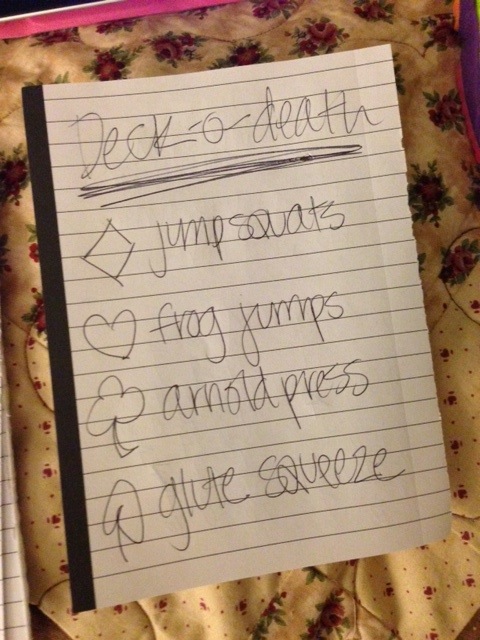 Deck-o-death
jump squats
frog jumps
arnold press
glute squeeze